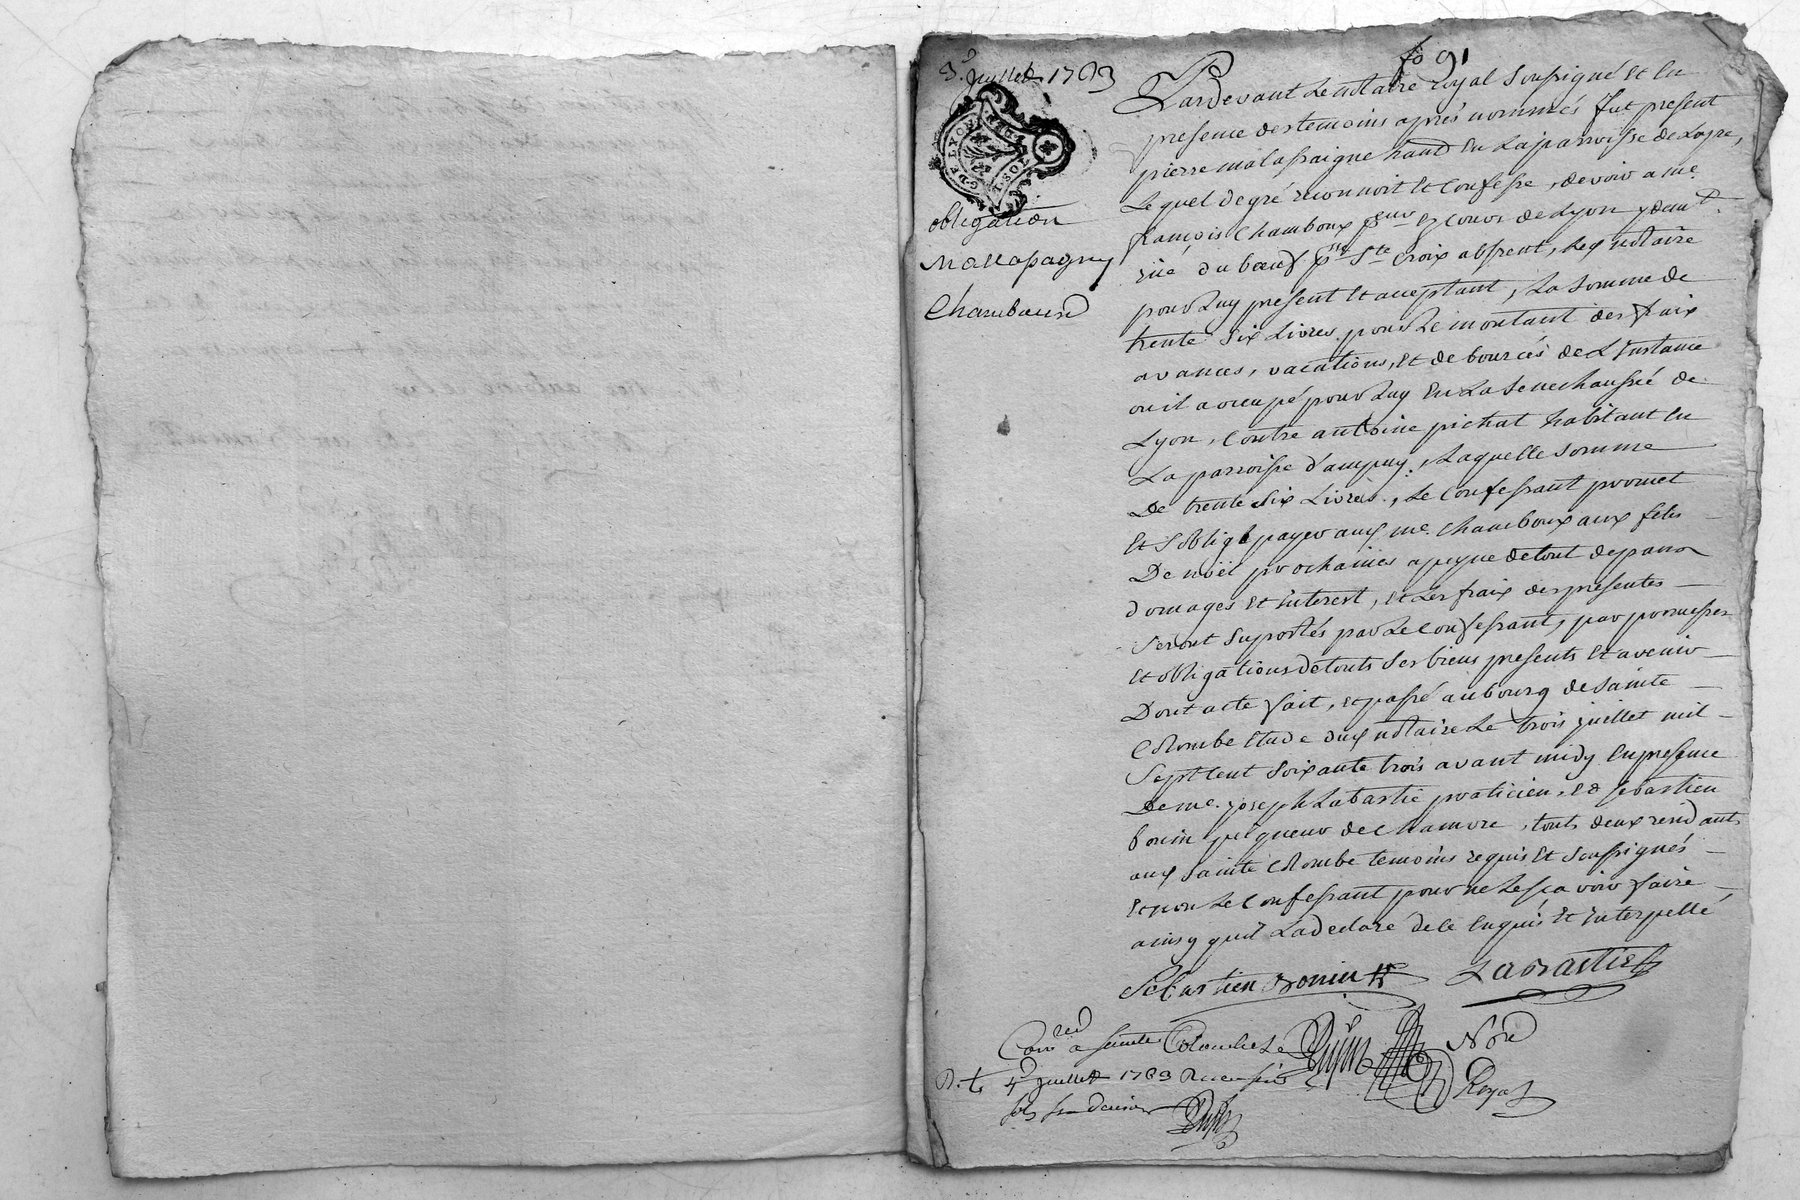 fo 91
3e juyllet 1763
G. DE LYON
obligation
Mallapagny
Chambaud
Pardevant Le notaire royal soussigné et En
presence des temoins aprés nommés fut present
pierre malassaigne hant En La parroisse de Loyre,
Lequel de gré reconnoit Et Confesse, devoir a me.
françois Chamboux pcur Ez Cours de Lyon y deant.
rüe du bœuf psse Ste Croix absent, Led notaire
pour Luy present Et acceptant, La somme de
trente six Livres pour Le montant des fraix
avances, vacations, Et debourcés de L'Instance
ou il a occupé pour Luy En La senechaussée de
Lyon, Contre antoine pichat habitant En
La parroisse d'ampuy, Laquelle somme
De trente six Livres, Le Confessant promet
Et s'oblige payer aud me. Chamboux aux fetes
De nöel prochaines a peyne de tout depans
domages Et interest, Et Les fraix des presentes
seront suportés par Le Confessant, par promesses
Et obligations de touts ses biens presents Et avenir
Dont acte fait, Et passé au bourg de sainte
Colombe Etude dud notaire Le trois juillet mil
sept Cent soixante trois avant midy En presence
De me. joseph Labastie praticien, Et sebastien
bonin piqueur de Chanvre, touts deux rendants
aud sainte Colombe temoins requis Et soussignés
Et non Le Confessant pour ne Le sçavoir faire
ainsy qu'il La declaré de ce Enquis Et Interpellé
Sebastien Bonin Labastie
Conred a Sainte Colombe Le Nore
4e Juillet 1763 Royal